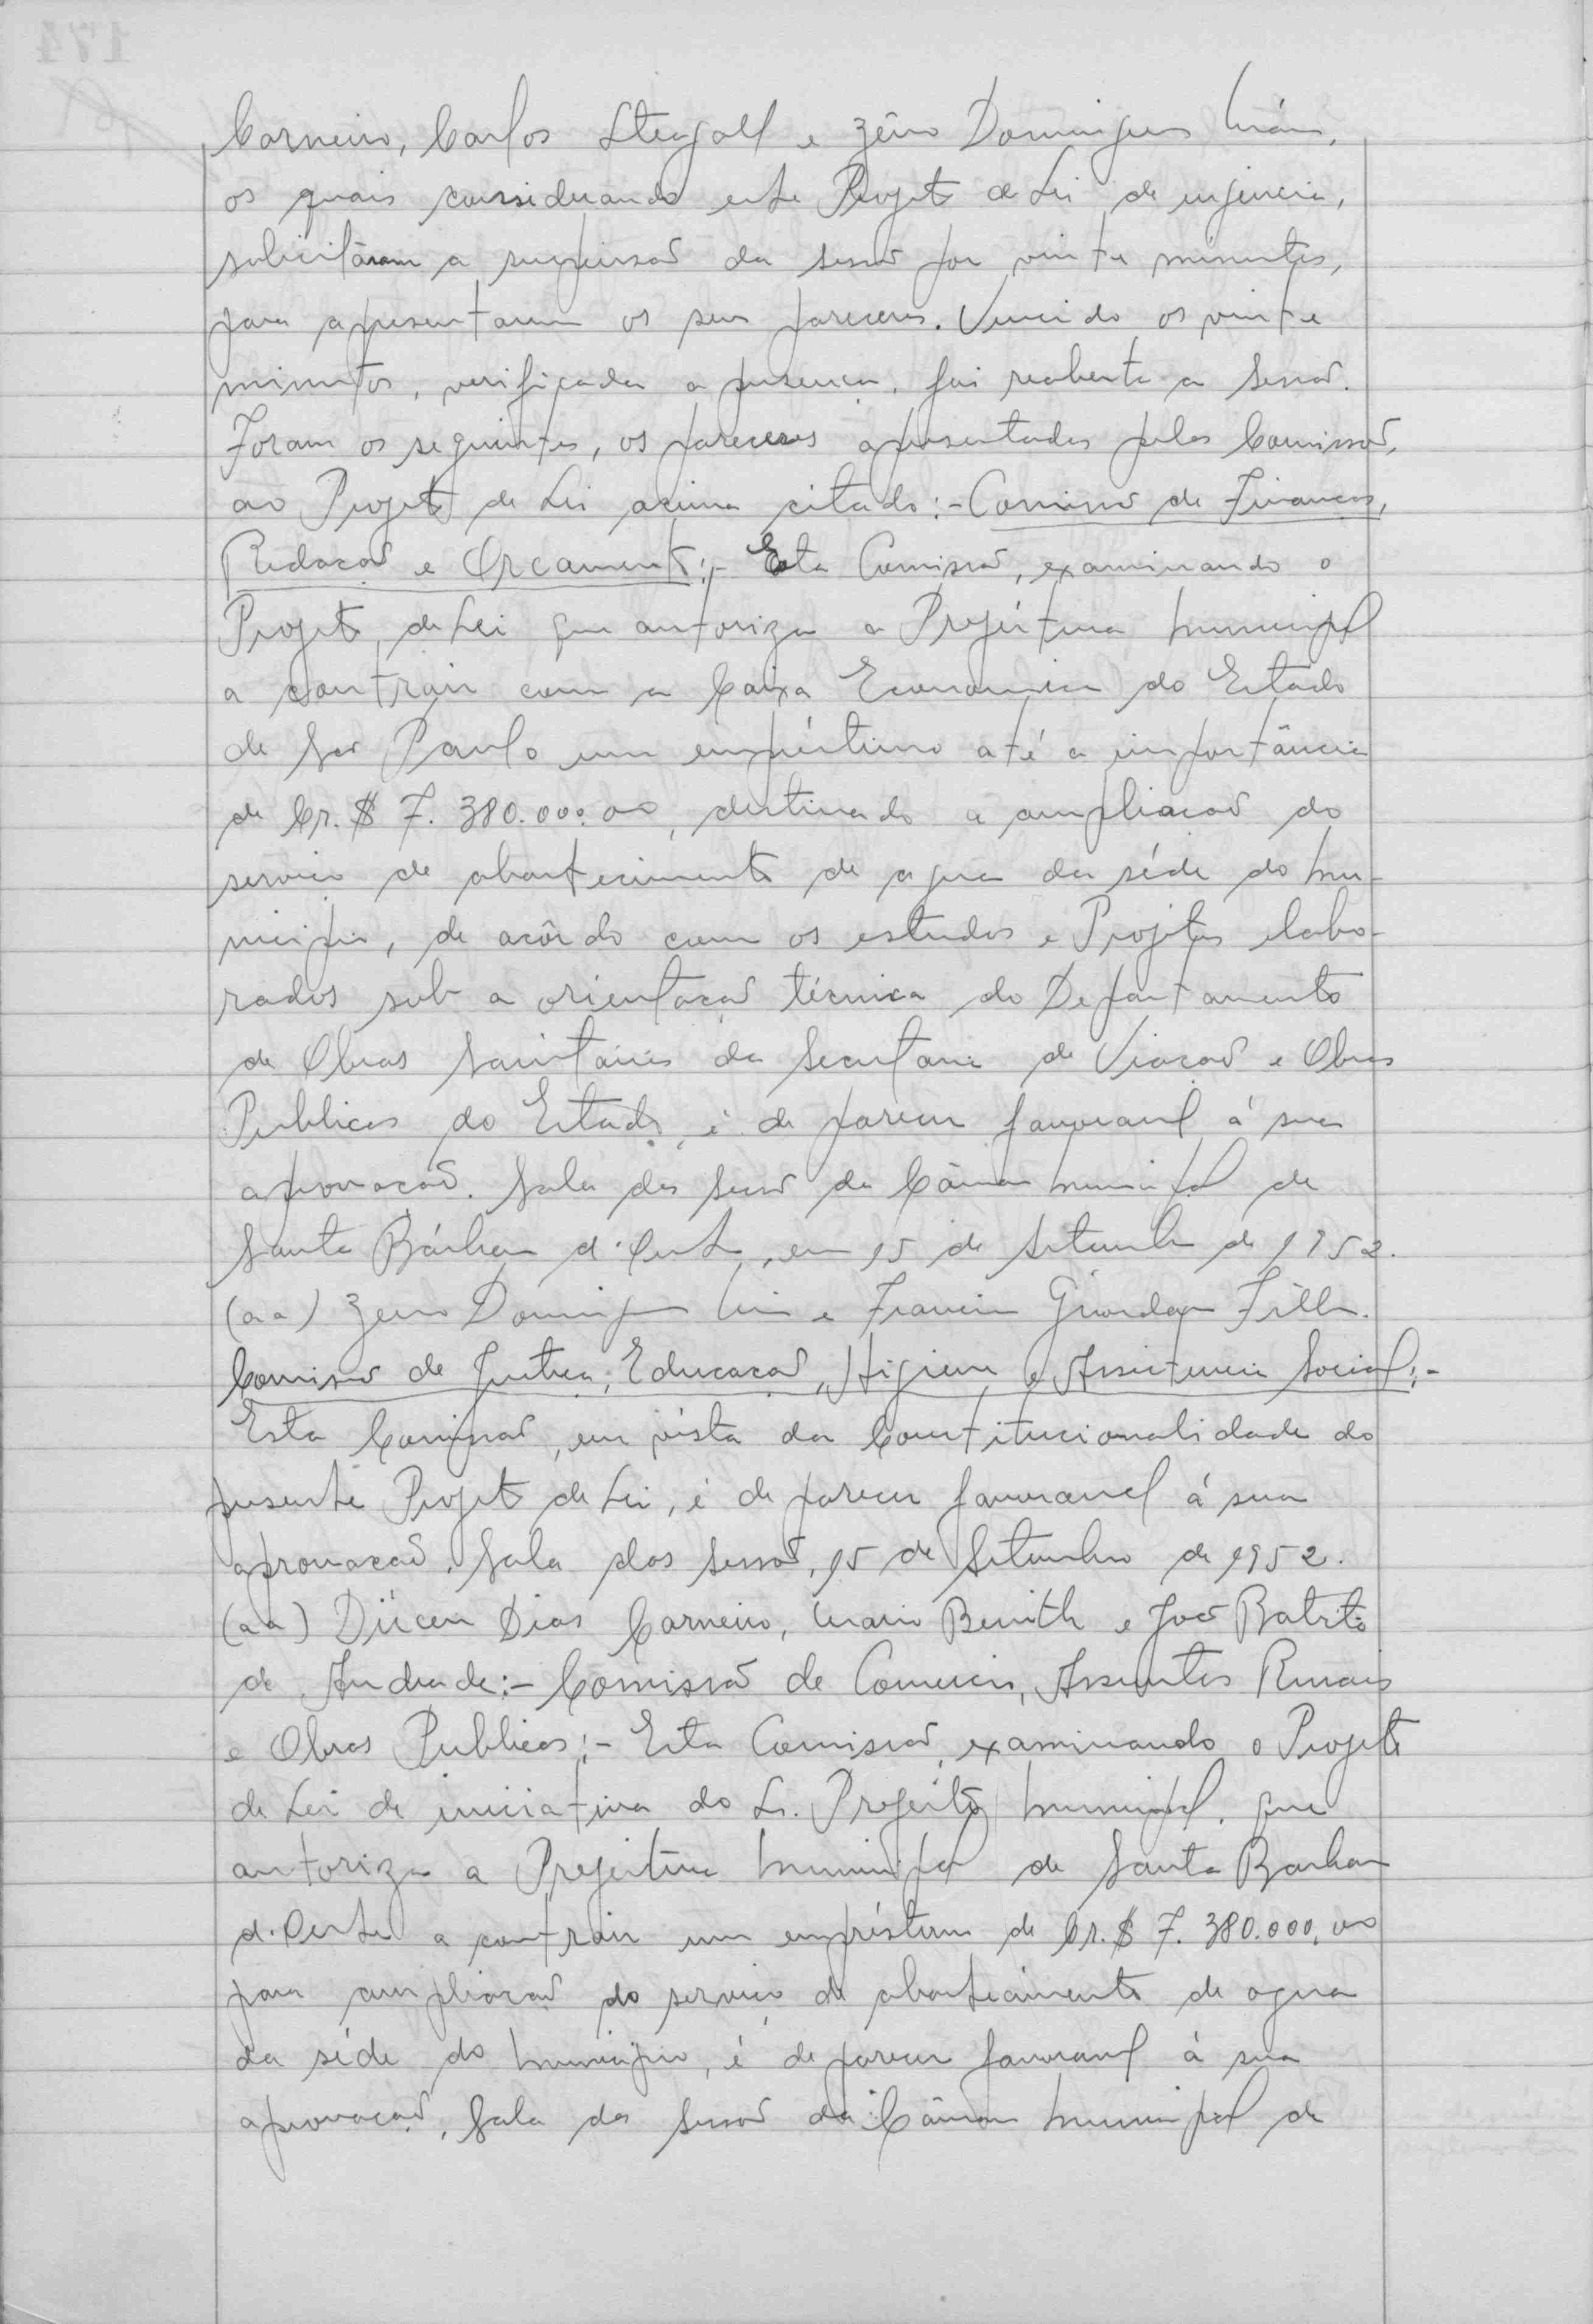 Carneiro, Carlos Steagall e Zêno Domingues Maia,
os quais considerando este Projeto de Lei de urgencia,
solicitáram a suspensão da sessão por vinte minutos,
para apresentarem os seus pareceres. Vencido os vinte
minutos, verificada a presença, foi reaberta a sessão.
Foram os seguintes, os pareceres apresentados pelas Comissões,
ao Projeto de Lei acima citado:- Comissão de Finanças,
Redação e Orçamento:- Esta Comissão, examinando o
Projeto de Lei que autoriza a Prefeitura Municipal
a contrair com a Caixa Economica do Estado
de São Paulo um empréstimo até a importância
de Cr.$ 7.380.000,00, destinado a ampliação do
serviço de abastecimento de agua da séde do Mu-
nicipio, de acôrdo com os estudos e Projetos elabo-
rados sob a orientação técnica do Departamento
de Obras Sanitárias da Secretaria de Viação e Obras
Publicas do Estado, é de parecer favoravel á sua
aprovação. Sala das Sessões da Câmara Municipal de
Santa Bárbara d'Oeste, em 15 de Setembro de 1952.
(aa) Zeno Domingues Maia e Francisco Giordano Filho.
Comissão de Justiça, Educação, Higiene e Assistencia Social:-
Esta Comissão, em vista da Constitucionalidade do
presente Projeto de Lei, é de parecer favoravel á sua
aprovação. Sala das Sessões, 15 de Setembro de 1952.
(aa) Dirceu Dias Carneiro, Mario e João Batista
de Andrade:- Comissão de Comercio, Assuntos Rurais
e Obras Publicas:- Esta Comissão, examinando o Projeto
de Lei de iniciativa do Sr. Prefeito Municipal, que
autoriza a Prefeitura Municipal de Santa Barbara
d'Oeste a contrair um empréstimo de Cr.$ 7.380.000,00
para ampliação do serviço de abastecimento de agua
da séde do Municipio, é de parecer favoravel á sua
aprovação, Sala das Sessões da Câmara Municipal de